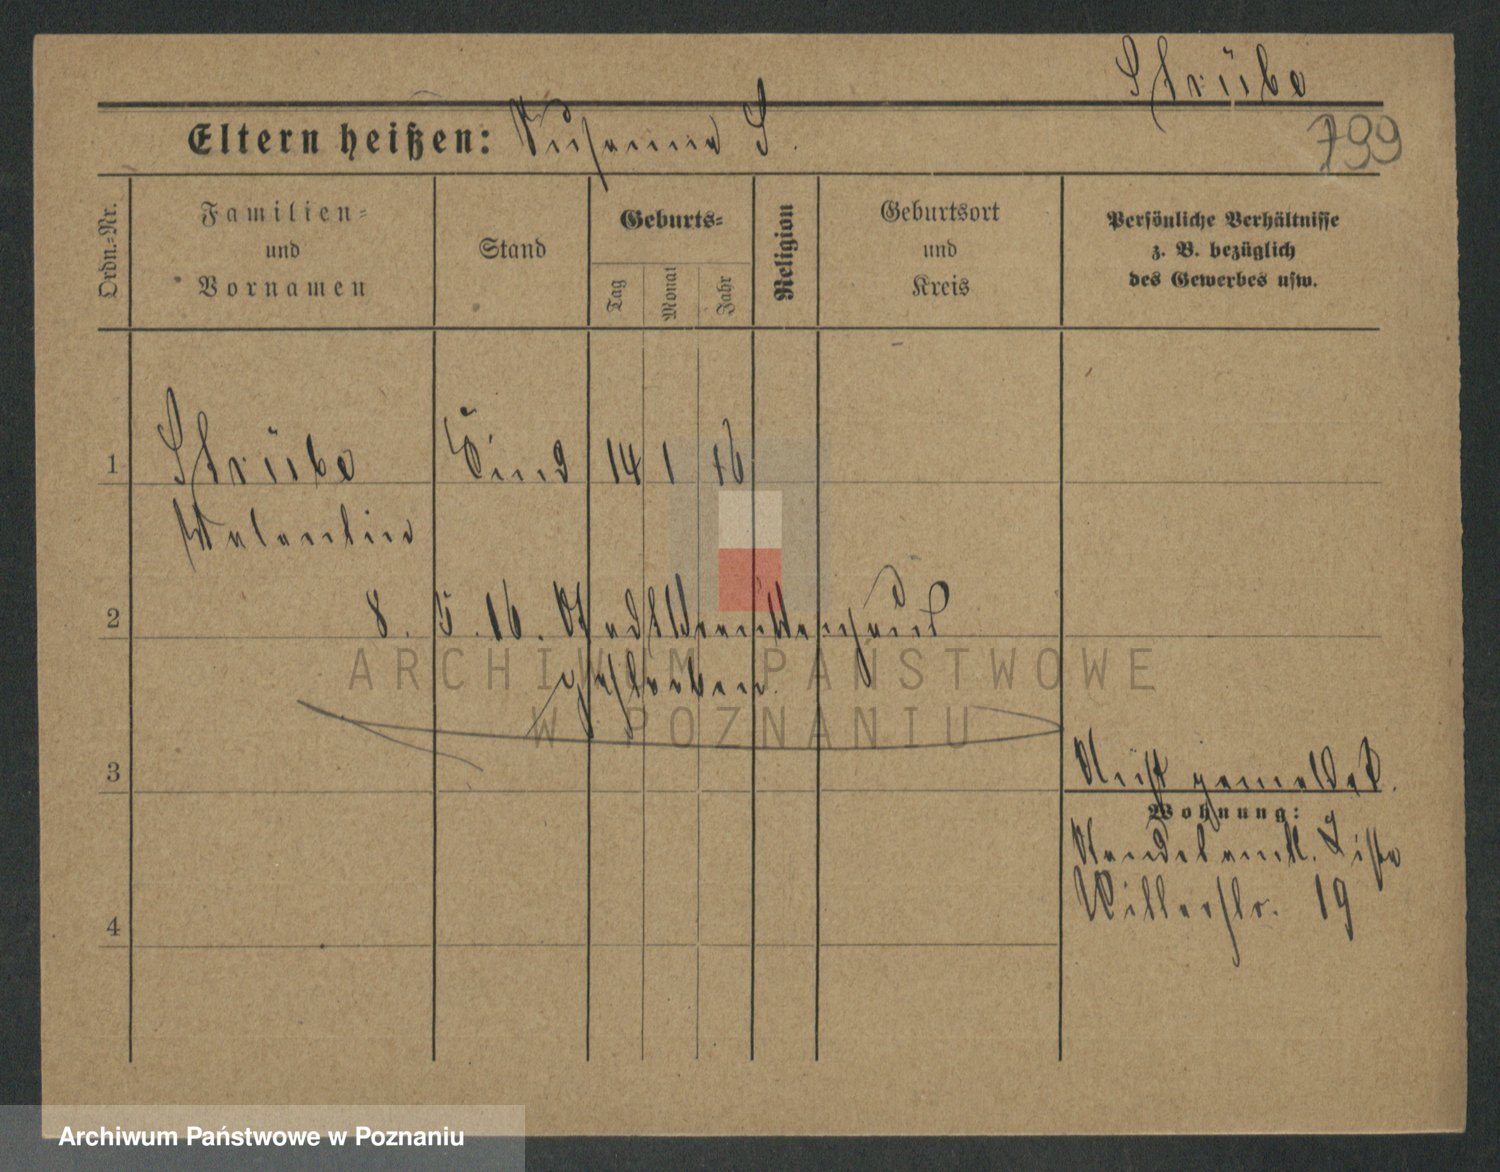 Strübe
Eltern heißen: Susanna S.
799
Ordn.-Nr.
Familien-
und
Vornamen
Stand
Geburts-
Tag
Monat
Jahr
Religion
Geburtsort
und
Kreis
Persönliche Verhältnisse
z. B. bezüglich
des Gewerbes usw.
1
Strübe Kind 14 1 16
Valentin
2
8. 5. 16. Stadtkrankenhaus
gestorben.
ARCHIWUM PAŃSTWOWE
W POZNANIU
3
Nicht gemeldet.
Wohnung:
Standesamtl. Liste
19
4
Archiwum Państwowe w Poznaniu